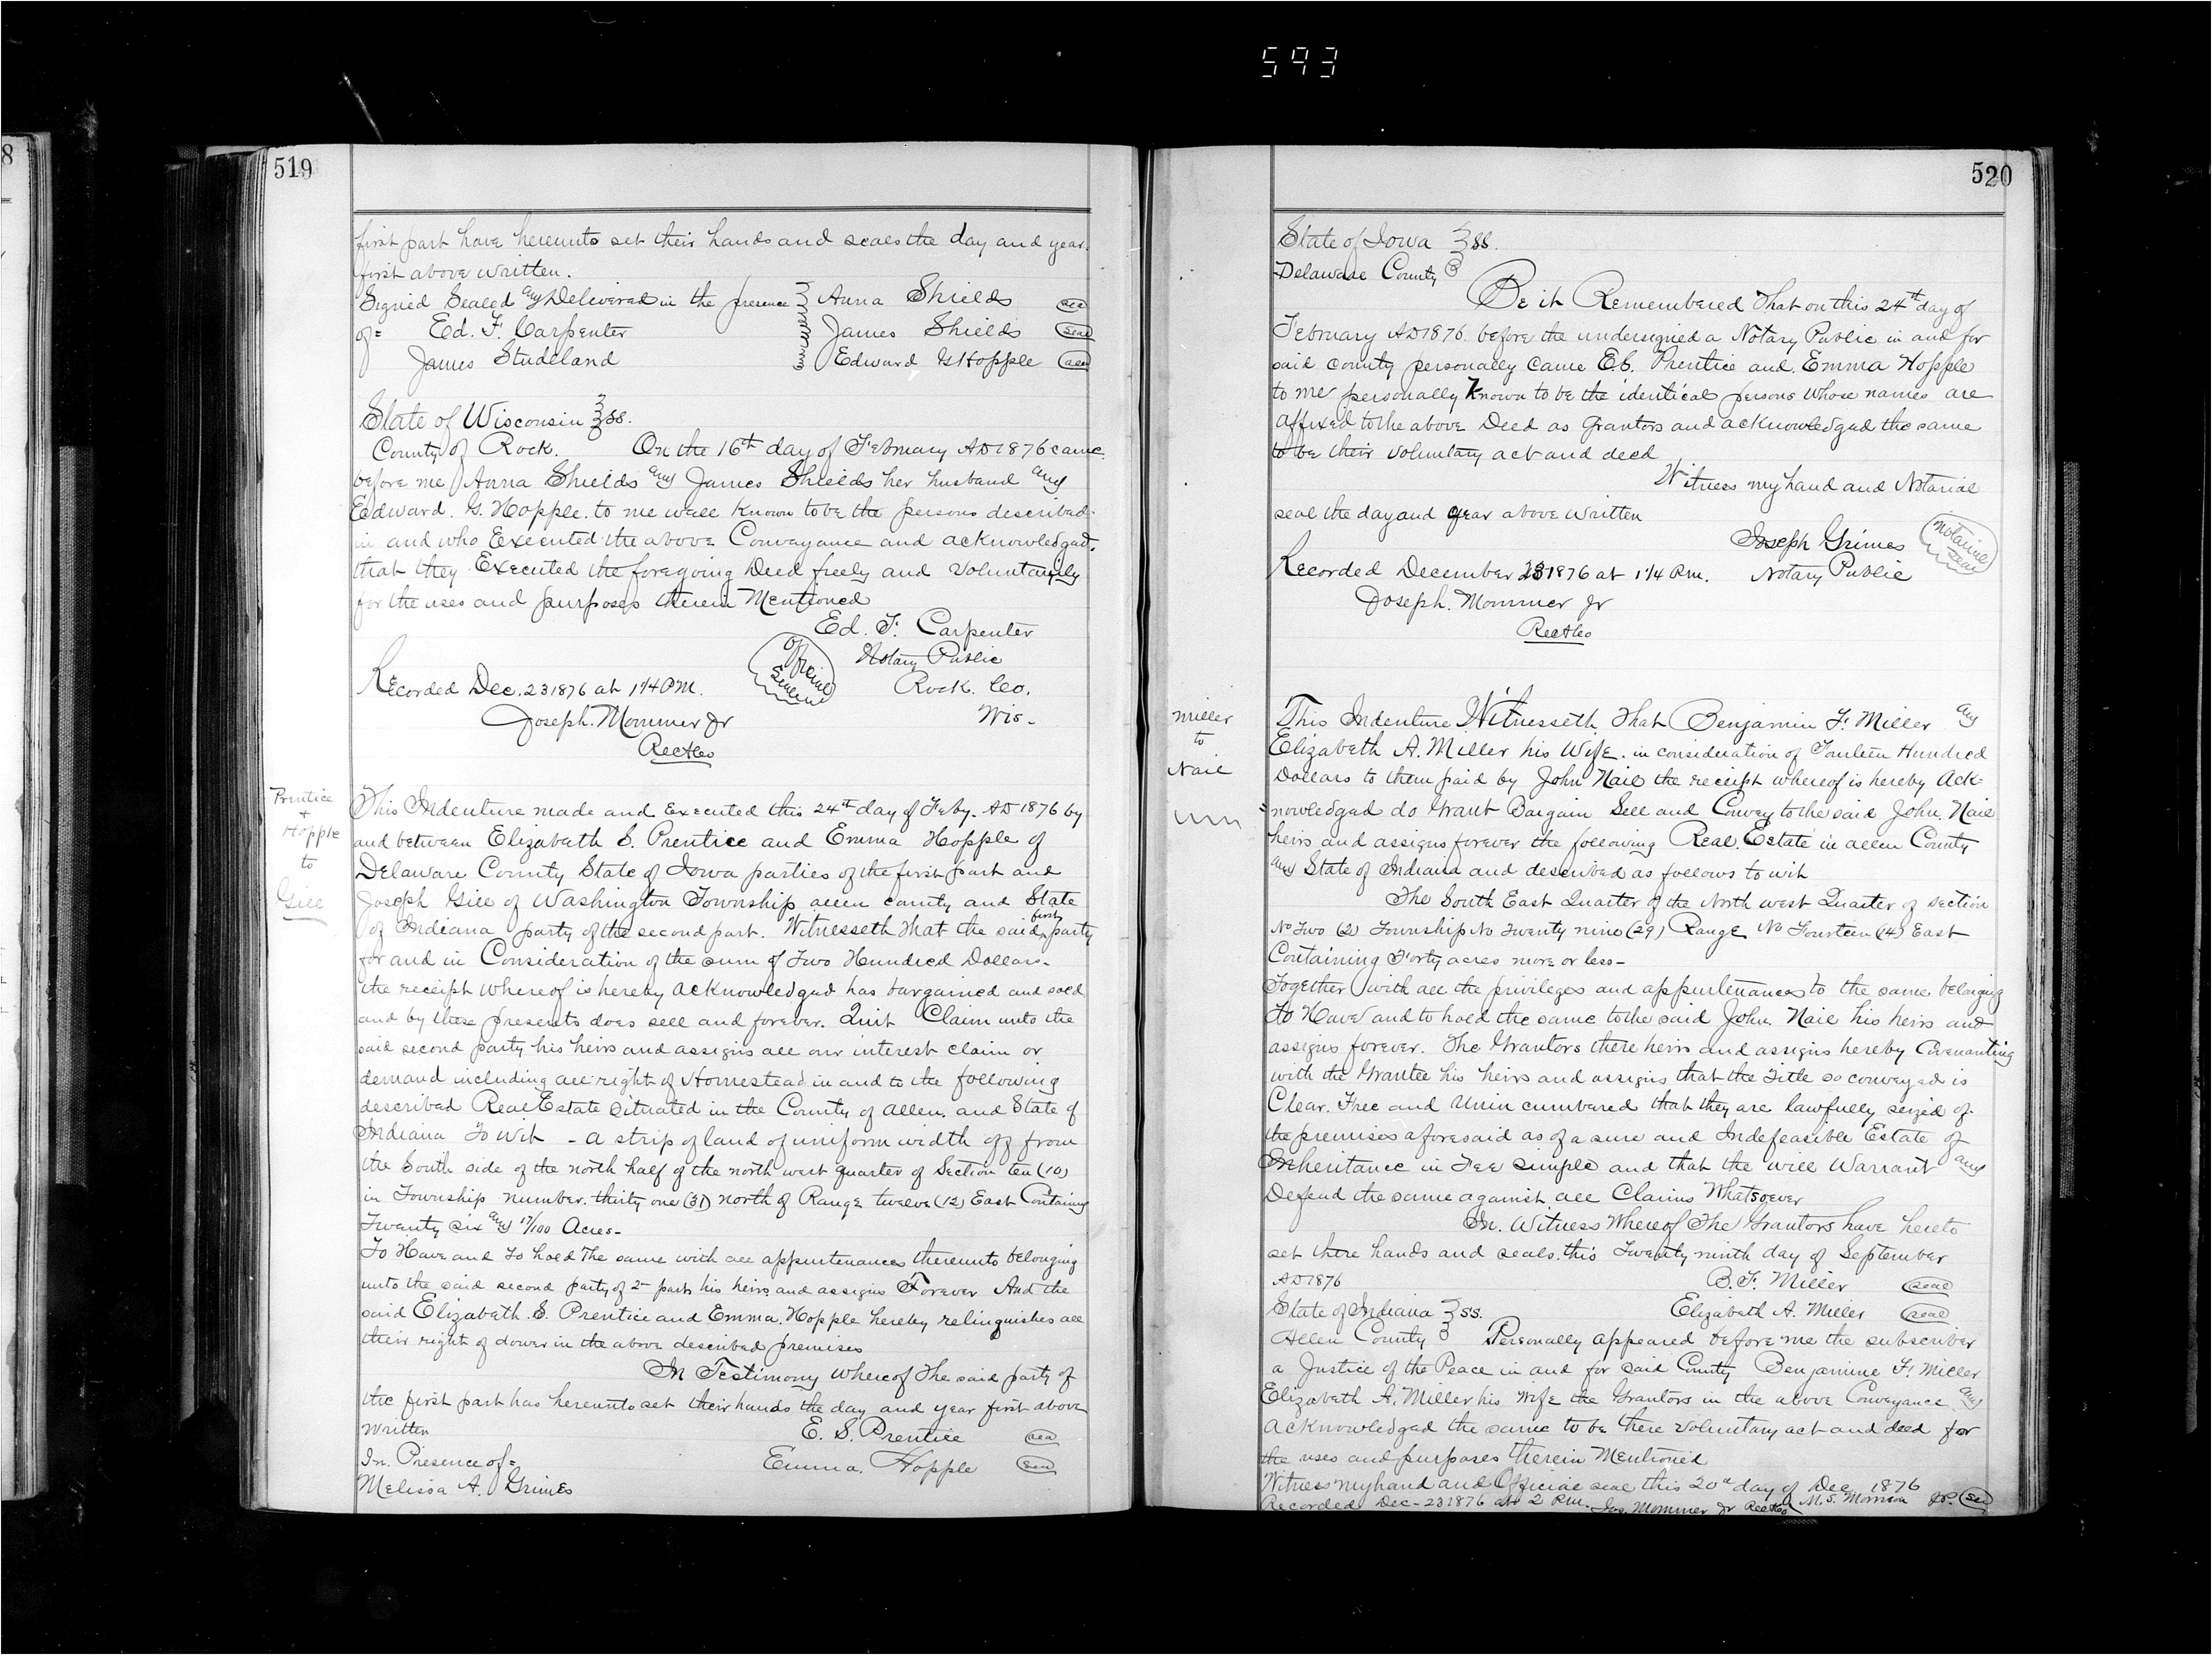 593
8
519
first part have hereunto set their hands and seals the day and year
first above written.
Signed Sealed any Delivered in the presence Anna Shields seal
of= Ed. F. Carpenter James Shields seal
James Studeland Edward G Hopple seal
State of Wisconsin ss.
County of Rock. On the 16th day of February AD 1876 came
before me Anna Shields any James Shields her husband any
Edward. G. Hopple. to me well Known to be the persons described
in and who Executed the above Conveyance and acknowledged.
that they Executed the foregoing Deed freely and Voluntarily
for the uses and purposes therein Mentioned
Ed. F. Carpenter
Official Seal Notary Public
Recorded Dec. 23 1876 at 1 1/4 P.M. Rock. Co.
Joseph. Mommer Jr Wis-
RecAco
Prentice
+
Hopple
to
Gill
This Indenture made and Executed this 24th day of Feby. AD 1876 by
and between Elizabeth S. Prentice and Emma Hopple of
Delaware County State of Iowa parties of the first part and
Joseph Gill of Washington Township allen county and State
of Indiana party of the second part. Witnesseth that the said first party
for and in Consideration of the sum of Two Hundred Dollars-
the receipt whereof is hereby acknowledged has bargained and sold
and by these presents does sell and forever. Quit Claim unto the
said second party his heirs and assigns all our interest claim or
demand including all right of Homestead in and to the following
described Real Estate Situated in the County of allen. and State of
Indiana To Wit - a strip of land of uniform width off from
the South side of the north half of the north west quarter of Section ten (10)
in Township number. thirty one (31) north of Range twelve (12) East Containing
Twenty six any 17/100 Acres-
To Have and to hold The same with all appurtenances thereunto belonging
unto the said second party of 2d part his heirs and assigns Forever And the
said Elizabeth. S. Prentice and Emma. Hopple hereby relinquishes all
their right of dower in the above described premises
In Testimony whereof The said party of
the first part has hereunto set their hands the day and year first above
Written E. S. Prentice seal
In. Presence of= Emma. Hopple seal
Melissa A. Grimes
520
State of Iowa ss.
Delaware County
Be it Remembered That on this 24th day of
February AD 1876. before the undersigned a Notary Public in and for
said county personally came E.S. Prentice and. Emma Hopple
to me personally Known to be the identical persons whose names are
affixed to the above Deed as Grantors and acknowledged the same
to be their voluntary act and deed
Witness my hand and Notarial
seal the day and year above written
Joseph Grimes Notarial Seal
Recorded December 23 1876 at 1 1/4 P.m. Notary Public
Joseph. Mommer Jr
RecAco
Miller
to
Nail
This Indenture Witnesseth. That Benjamin F. Miller any
Elizabeth A. Miller his Wife. in consideration of Fourteen Hundred
Dollars to them paid by John Nail the receipt whereof is hereby Ack-
=nowledged do Grant Bargain Sell and Convey to the said John. Nail
heirs and assigns forever the following Real. Estate in allen County
any State of Indiana and described as follows to wit
The South East Quarter of the North west Quarter of section
No Two (2) Township No Twenty nine (29) Range No Fourteen (14) East
Containing Forty acres more or less-
Together with all the privileges and appurtenances to the same belonging
To Have and to hold the same to the said John. Nail his heirs and
assigns forever. The Grantors there heirs and assigns hereby Covenanting
with the Grantee his heirs and assigns that the Title so conveyed is
Clear. Free and Unin cumbered that they are lawfully seized of
the premises aforesaid as of a sure and Indefeasible Estate of
Inheritance in Fee simple and that the will Warrant any
Defend the same against all Claims Whatsoever
In. Witness Whereof The Grantors have hereto
set there hands and seals. this Twenty ninth day of September
AD 1876 B. F. Miller seal
State of Indiana ss. Elizabeth A. Miller seal
Allen County Personally appeared before me the subscriber
a Justice of the Peace in and for said County Benjamine F. Miller
Elizabeth A. Miller his Wife the Grantors in the above Conveyance. any
acknowledged the same to be there voluntary act and deed for
the uses and purposes therein Mentioned
Witness my hand and Official seal this 20th day of Dec. 1876
Recorded Dec-23 1876 at 2 P.m. Jos. Mommer Jr RecAco M. S. Morrison J.P. seal